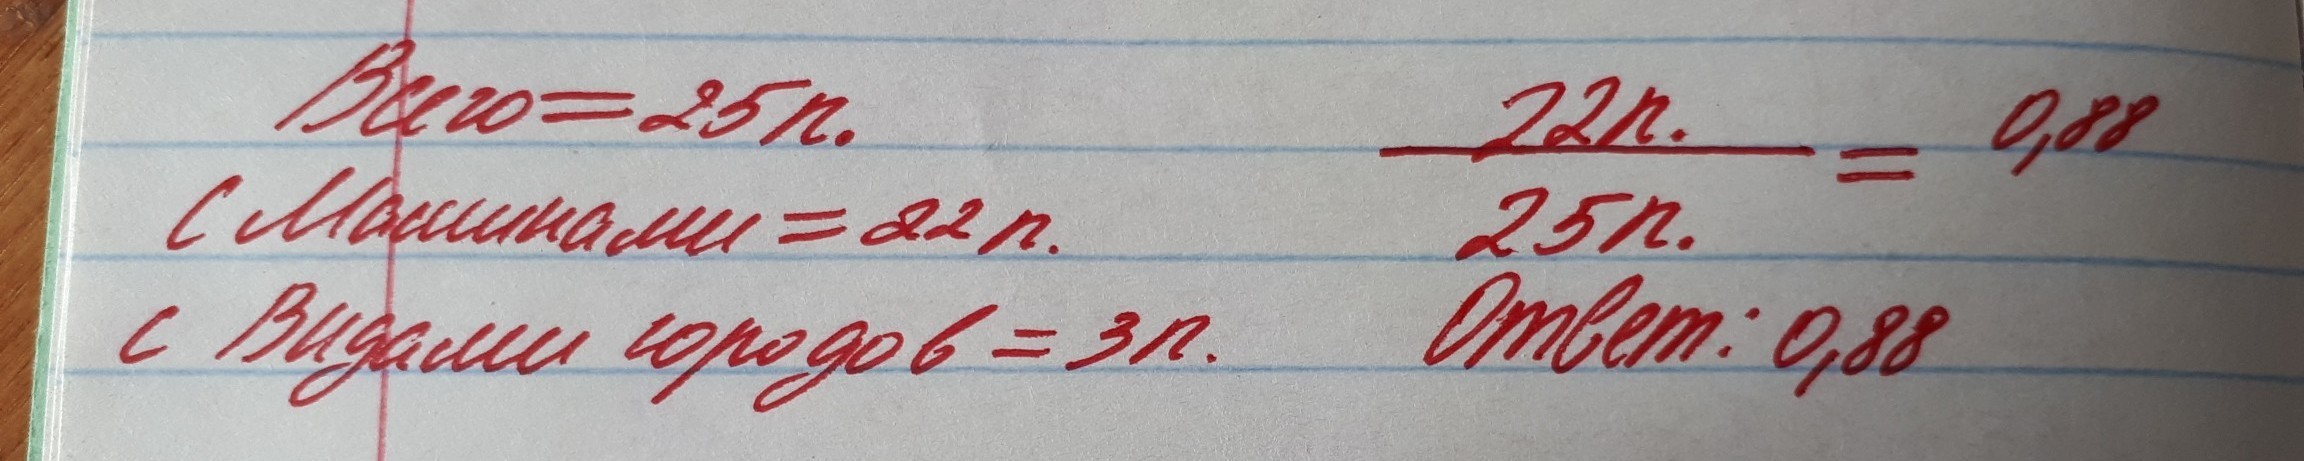 Всего = 25 п.
с Машинами = 22 п.
с Видами городов = 3 п.
22 п.
25 п.
= 0,88
Ответ: 0,88